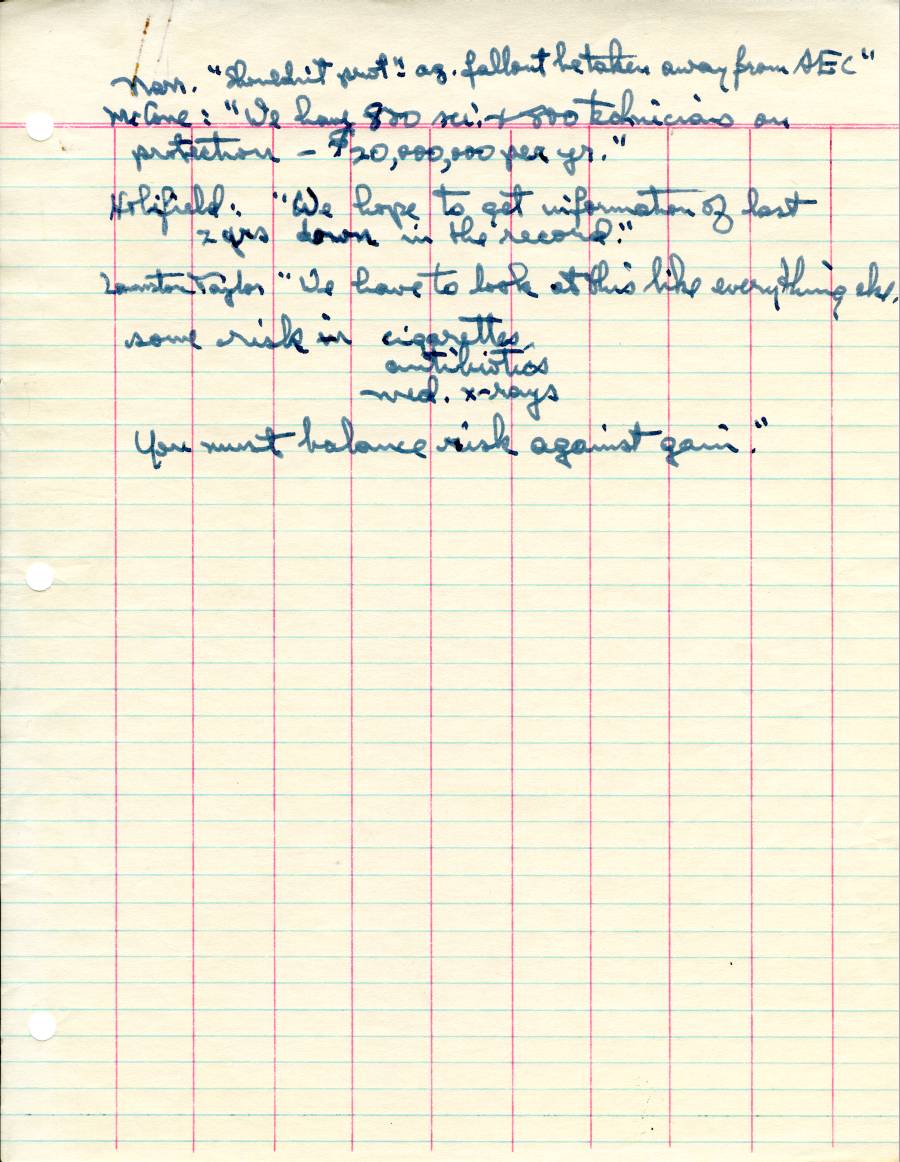 Narr. "Shouldn't prot'n ag. fallout be taken away from AEC"
McCone: "We have 820 sci. + 800 technicians on
protection – $20,000,000 per yr."
Holifield: "We hope to get information of last
2 yrs down in the record."
Lauriston Taylor "We have to look at this like everything else.
some risk in cigarettes,
antibiotics
med. x-rays
You must balance risk against gain."